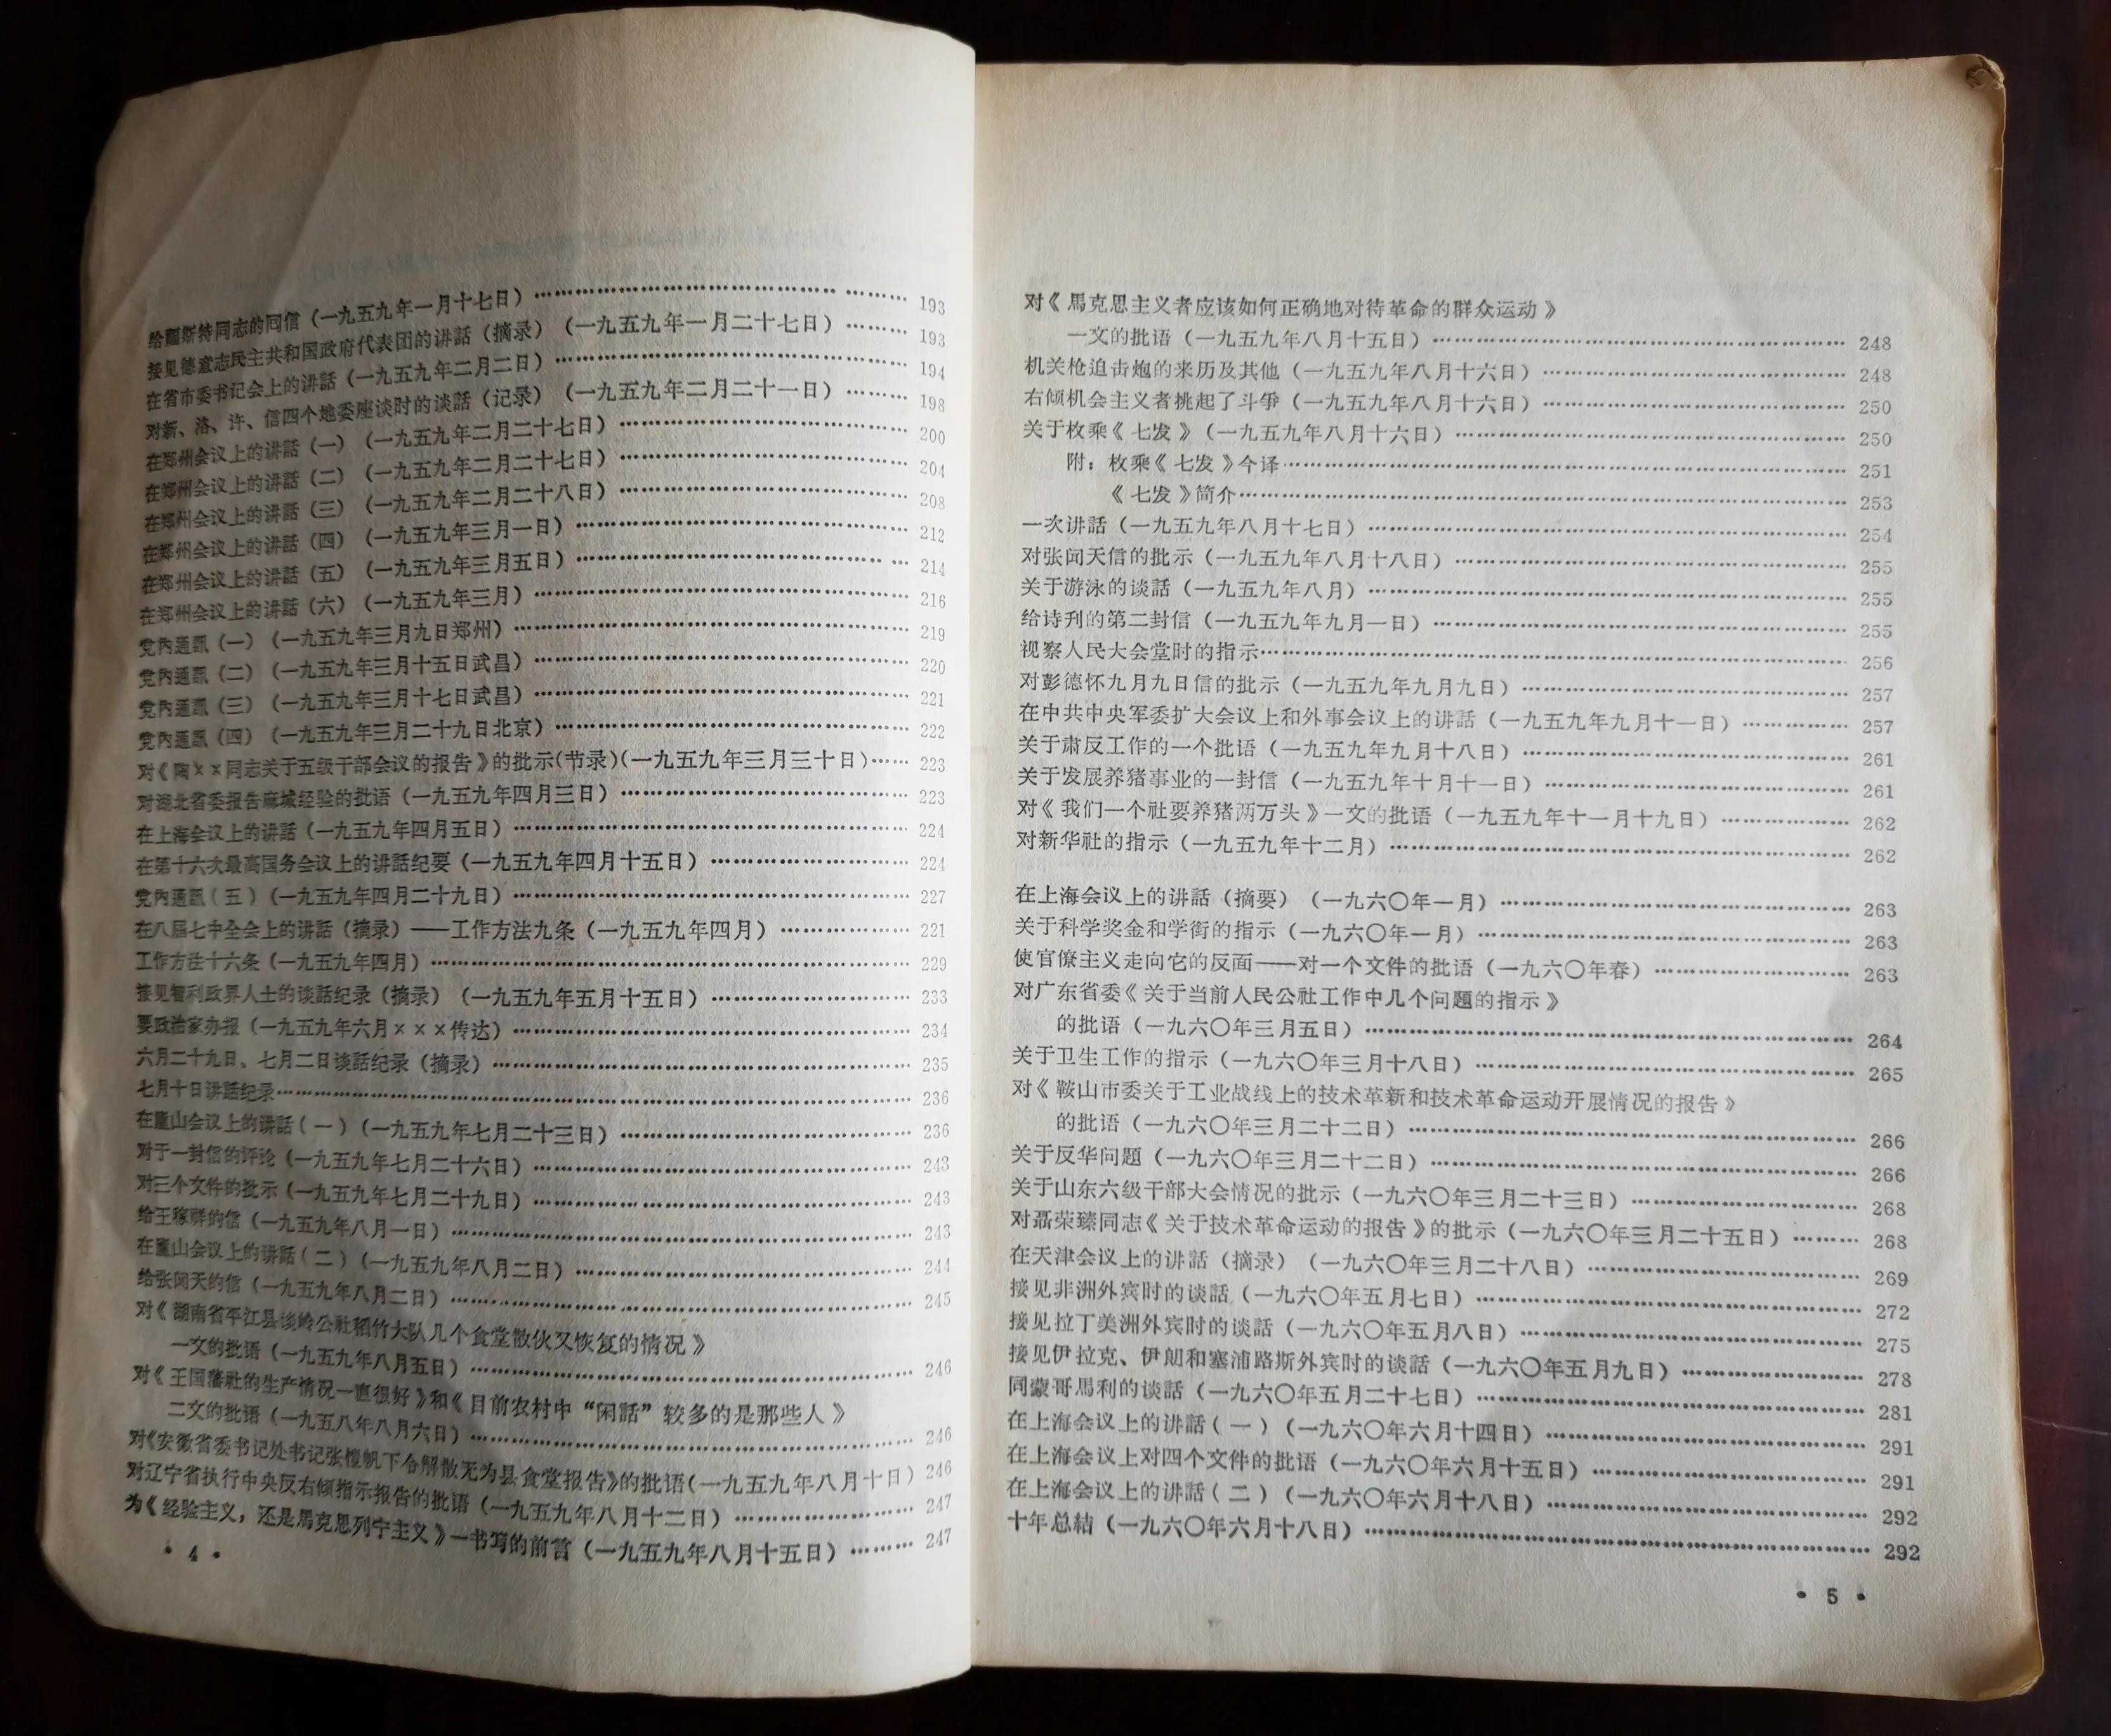 给福斯特同志的回信(一九五九年一月十七日)…………………………………… 193
接见德意志民主共和国政府代表团的讲話(摘录)(一九五九年一月二十七日)……… 193
在省市委书记会上的讲話(一九五九年二月二日)…………………………………… 194
对新、洛、许、信四个地委座谈时的谈話(记录)(一九五九年二月二十一日)……… 198
在郑州会议上的讲話(一)(一九五九年二月二十七日)………………………… 200
在郑州会议上的讲話(二)(一九五九年二月二十七日)………………………… 204
在郑州会议上的讲話(三)(一九五九年二月二十八日)………………………… 208
在郑州会议上的讲話(四)(一九五九年三月一日)……………………………… 212
在郑州会议上的讲話(五)(一九五九年三月五日)……………………………… 214
在郑州会议上的讲話(六)(一九五九年三月)…………………………………… 216
党内通訊(一)(一九五九年三月九日郑州)……………………………………… 219
党内通訊(二)(一九五九年三月十五日武昌)…………………………………… 220
党内通訊(三)(一九五九年三月十七日武昌)…………………………………… 221
党内通訊(四)(一九五九年三月二十九日北京)………………………………… 222
对《陶××同志关于五级干部会议的报告》的批示(节录)(一九五九年三月三十日)…… 223
对湖北省委报告麻城经验的批语(一九五九年四月三日)………………………… 223
在上海会议上的讲話(一九五九年四月五日)……………………………………… 224
在第十六次最高国务会议上的讲話纪要(一九五九年四月十五日)……………… 224
党内通訊(五)(一九五九年四月二十九日)……………………………………… 227
在八届七中全会上的讲話(摘录)——工作方法九条(一九五九年四月)………… 221
工作方法十六条(一九五九年四月)……………………………………………… 229
接见智利政界人士的谈話纪录(摘录)(一九五九年五月十五日)……………… 233
要政治家办报(一九五九年六月×××传达)……………………………………… 234
六月二十九日、七月二日谈話纪录(摘录)……………………………………… 235
七月十日讲話纪录………………………………………………………………… 236
在廬山会议上的讲話(一)(一九五九年七月二十三日)………………………… 236
对于一封信的评论(一九五九年七月二十六日)………………………………… 243
对三个文件的批示(一九五九年七月二十九日)………………………………… 243
给王稼祥的信(一九五九年八月一日)…………………………………………… 243
在廬山会议上的讲話(二)(一九五九年八月二日)……………………………… 244
给张闻天的信(一九五九年八月二日)…………………………………………… 245
对《湖南省平江县谈岭公社稻竹大队几个食堂散伙又恢复的情况》
一文的批语(一九五九年八月五日)……………………………………… 246
对《王国藩社的生产情况一直很好》和《目前农村中“闲話”较多的是那些人》
二文的批语(一九五八年八月六日)……………………………………… 246
对《安徽省委书记处书记张愷帆下令解散无为县食堂报告》的批语(一九五九年八月十日) 246
对辽宁省执行中央反右倾指示报告的批语(一九五九年八月十二日)…………… 247
为《经验主义,还是馬克思列宁主义》一书写的前言(一九五九年八月十五日)……… 247
• 4 •
对《馬克思主义者应该如何正确地对待革命的群众运动》
一文的批语(一九五九年八月十五日)…………………………………… 248
机关枪迫击炮的来历及其他(一九五九年八月十六日)………………………… 248
右倾机会主义者挑起了斗爭(一九五九年八月十六日)………………………… 250
关于枚乘《七发》(一九五九年八月十六日)…………………………………… 250
附:枚乘《七发》今译…………………………………………………… 251
《七发》简介……………………………………………………… 253
一次讲話(一九五九年八月十七日)…………………………………………… 254
对张闻天信的批示(一九五九年八月十八日)………………………………… 255
关于游泳的谈話(一九五九年八月)…………………………………………… 255
给诗刊的第二封信(一九五九年九月一日)…………………………………… 255
视察人民大会堂时的指示……………………………………………………… 256
对彭德怀九月九日信的批示(一九五九年九月九日)………………………… 257
在中共中央军委扩大会议上和外事会议上的讲話(一九五九年九月十一日)………… 257
关于肃反工作的一个批语(一九五九年九月十八日)………………………… 261
关于发展养猪事业的一封信(一九五九年十月十一日)……………………… 261
对《我们一个社要养猪两万头》一文的批语(一九五九年十一月十九日)………… 262
对新华社的指示(一九五九年十二月)………………………………………… 262
在上海会议上的讲話(摘要)(一九六〇年一月)……………………………… 263
关于科学奖金和学衔的指示(一九六〇年一月)……………………………… 263
使官僚主义走向它的反面——对一个文件的批语(一九六〇年春)………………… 263
对广东省委《关于当前人民公社工作中几个问题的指示》
的批语(一九六〇年三月五日)…………………………………………… 264
关于卫生工作的指示(一九六〇年三月十八日)……………………………… 265
对《鞍山市委关于工业战线上的技术革新和技术革命运动开展情况的报告》
的批语(一九六〇年三月二十二日)……………………………………… 266
关于反华问题(一九六〇年三月二十二日)…………………………………… 266
关于山东六级干部大会情况的批示(一九六〇年三月二十三日)……………… 268
对聶荣臻同志《关于技术革命运动的报告》的批示(一九六〇年三月二十五日)……… 268
在天津会议上的讲話(摘录)(一九六〇年三月二十八日)…………………… 269
接见非洲外宾时的谈話(一九六〇年五月七日)……………………………… 272
接见拉丁美洲外宾时的谈話(一九六〇年五月八日)………………………… 275
接见伊拉克、伊朗和塞浦路斯外宾时的谈話(一九六〇年五月九日)……………… 278
同蒙哥馬利的谈話(一九六〇年五月二十七日)……………………………… 281
在上海会议上的讲話(一)(一九六〇年六月十四日)………………………… 291
在上海会议上对四个文件的批语(一九六〇年六月十五日)………………… 291
在上海会议上的讲話(二)(一九六〇年六月十八日)………………………… 292
十年总结(一九六〇年六月十八日)…………………………………………… 292
• 5 •